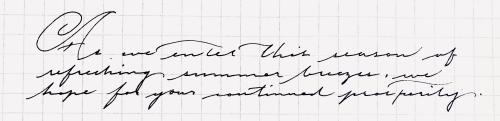 As we enter this season of
refreshing summer breeze, we
hope for your continued prosperity.